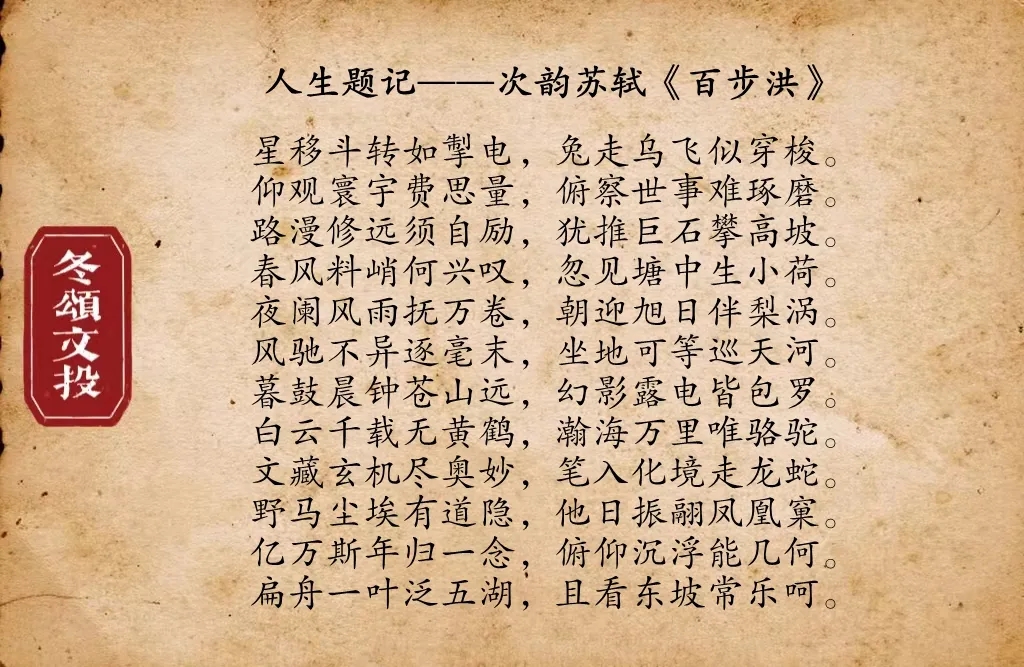 人生题记——次韵苏轼《百步洪》
星移斗转如掣电，兔走乌飞似穿梭。
仰观寰宇费思量，俯察世事难琢磨。
路漫修远须自励，犹推巨石攀高坡。
春风料峭何兴叹，忽见塘中生小荷。
夜阑风雨抚万卷，朝迎旭日伴梨涡。
风驰不异逐毫末，坐地可等巡天河。
暮鼓晨钟苍山远，幻影露电皆包罗。
白云千载无黄鹤，瀚海万里唯骆驼。
文藏玄机尽奥妙，笔入化境走龙蛇。
野马尘埃有道隐，他日振翮凤凰窠。
亿万斯年归一念，俯仰沉浮能几何。
扁舟一叶泛五湖，且看东坡常乐呵。
冬頌文投